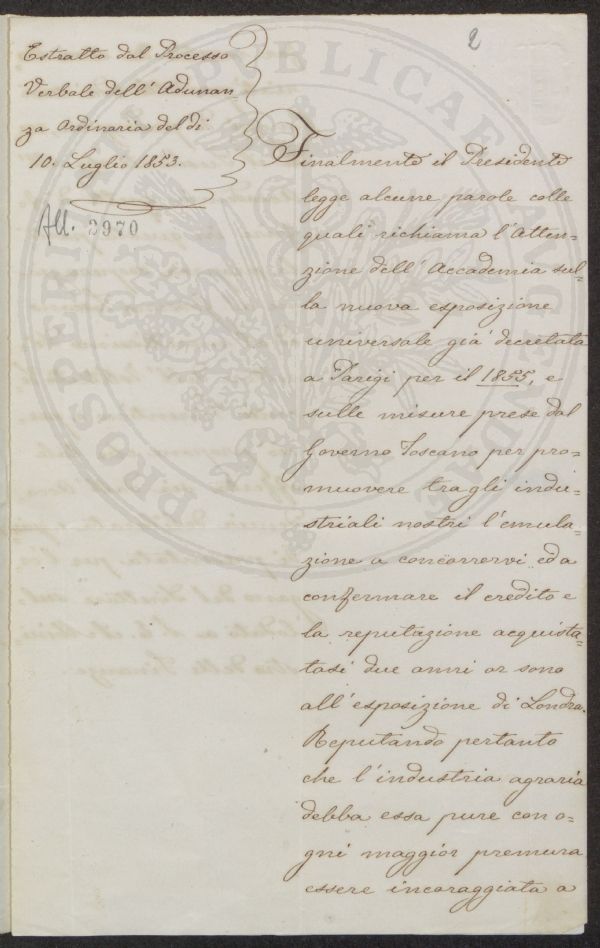 2
Estratto dal Processo
Verbale dell' Adunan
za Ordinaria del dì
10. Luglio 1853.
All. 3970
Finalmente il Presidente
legge alcune parole colle
quali richiama l'Atten=
zione dell' Accademia sul=
la nuova esposizione
universale già decretata
a Parigi per il 1855, e
sulle misure prese dal
Governo Toscano per pro=
muovere tra gli indu=
striali nostri l'emula=
zione a concorrervi ed a
confermare il credito e
la reputazione acquista=
tasi due anni or sono
all'esposizione di Londra.
Reputando pertanto
che l'industria agraria
debba essa pure con o=
gni maggior premura
essere incoraggiata a
PROSPERITATI PUBLICAE AUGENDAE